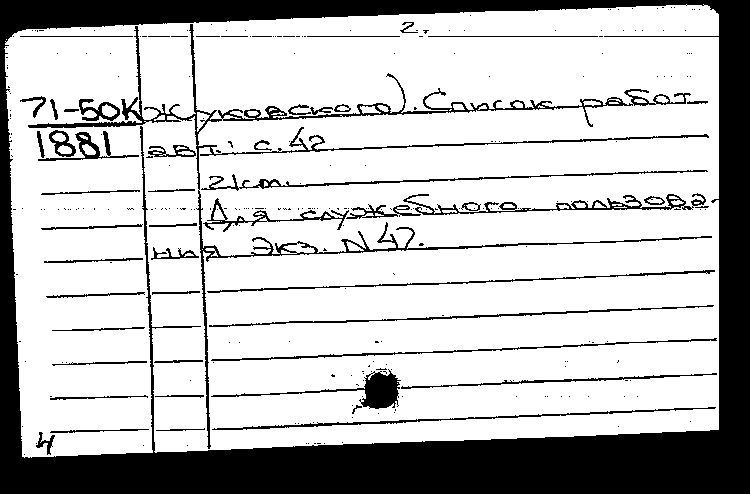 2.
71-50К Жуковского). Список работ
1881 авт.: с. 42
21cm.
Для служебного пользова-
ния Экз. N 47.
4